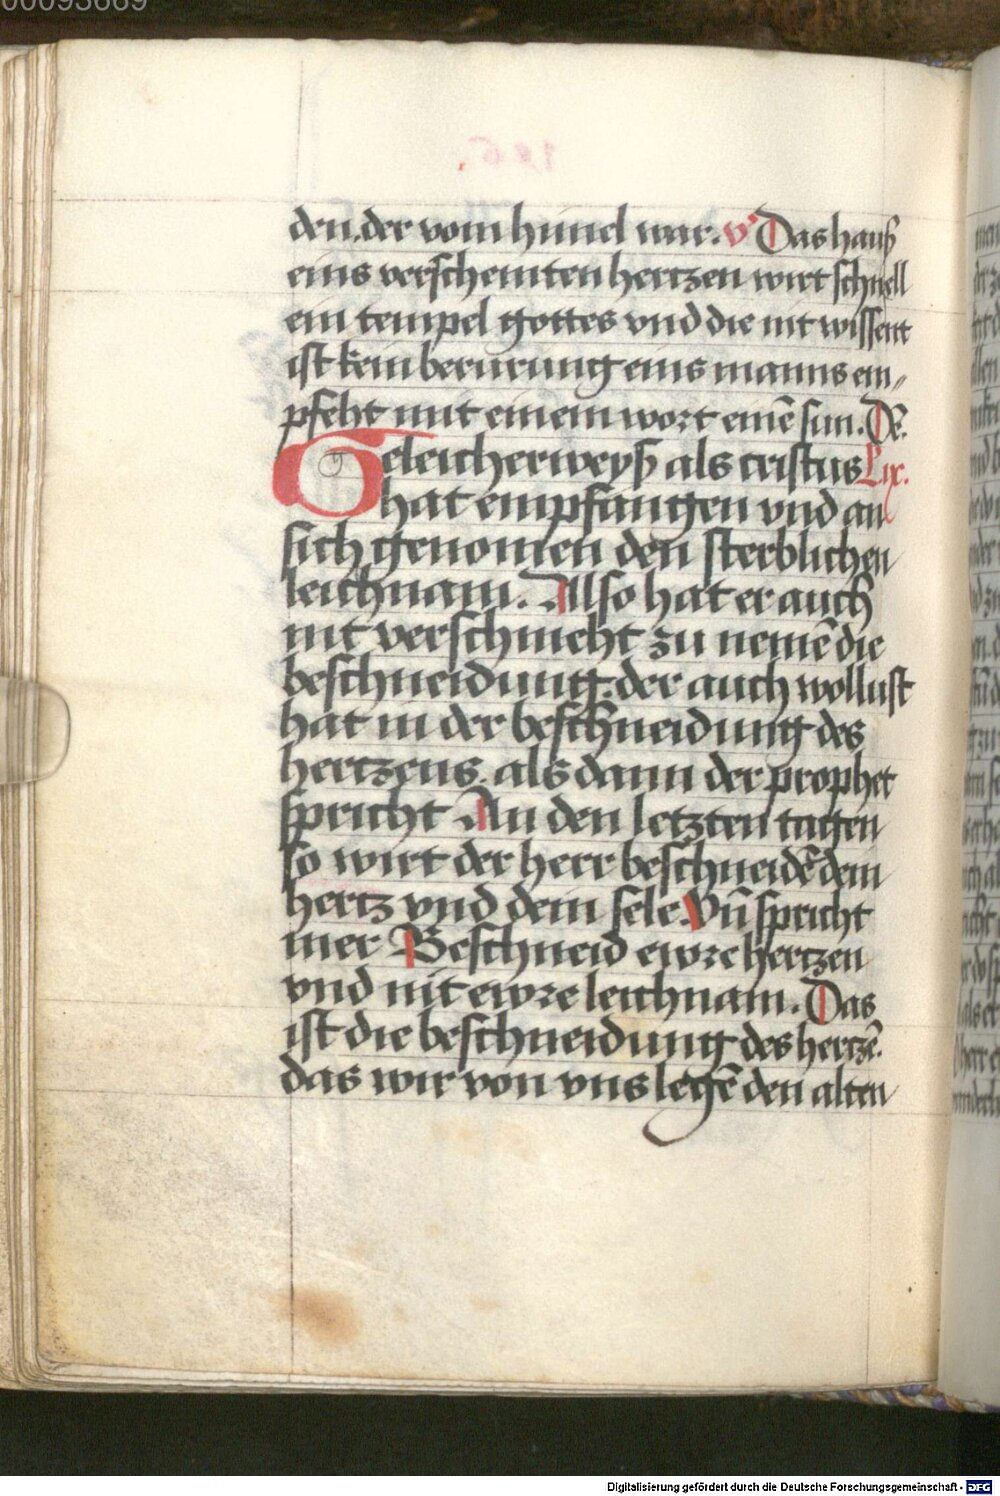 00093669
den. der vom himel war. v Das hauß
eins verschemten hertzen wirt schnell
ein tempel gottes vnd die nit wissent
ist kein berurung eins manns em„
pfeht mit einem wort einē sun. Dē.
Geleicherweyß als cristus Lix.
hat empfangen vnd an
sich genomen den sterblichen
leichnam. Also hat er auch
nit verschmeht zu nemē die
beschneidung. der auch wollust
hat in der beschneidung des
hertzens. als dann der prophet
spricht An den letzten tagen
so wirt der herr beschneidē dein
hertz vnd dein sele. Vn̄ spricht
mer Beschneid ewre hertzen
vnd nit ewre leichnam. Das
ist die beschneidung des hertzē.
das wir von vns legē den alten
Digitalisierung gefördert durch die Deutsche Forschungsgemeinschaft - DFG